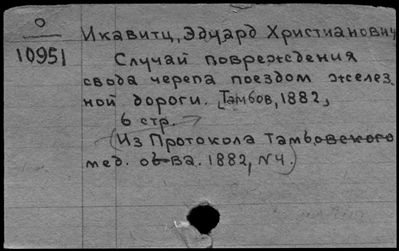 О
10951
Икавитц, Эдуард Христианович
Случай повреждения
свода черепа поездом желез.
ной дороги. [Тамбов, 1882,]
6 стр.
(Из Протокола Тамбовского
мед. об-ва. 1882, N4.)